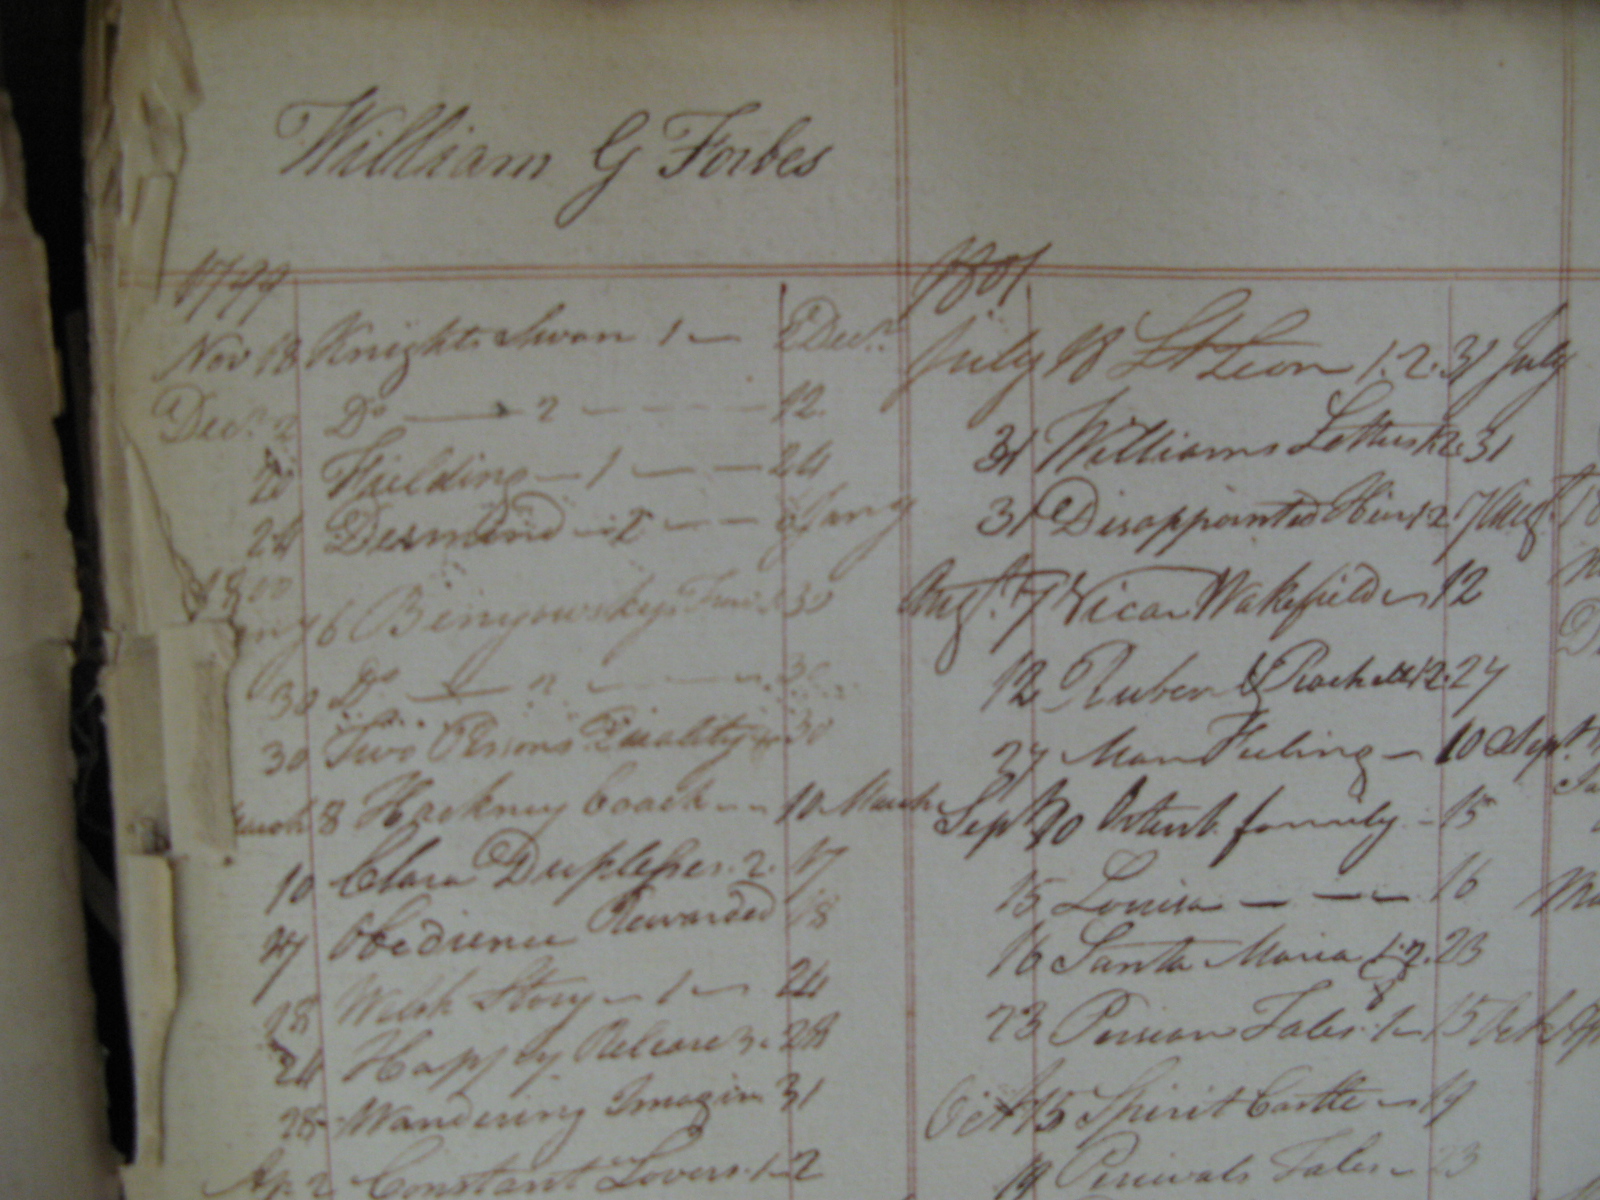 William G Forbes
1799
Nov 18 Knights Swan 1 — 2 Decr
Decr 2 Do — 2 - - - - 12
Fielding — 1 — — 24
24 Desmond — 2 — — 6 Jany
1800
6 Benyowsky 30
30 Do — 2 - - - 30
30 Two Persons Quality 30
March 8 Hackney Coach - - 10 March
10 Clara Duplessis 2. 17
17 Obedience Rewarded 18
18 Welsh Story — 1 — 24
24 Happy Release 3. 28
28 Wandering Imagin 31
Ap. 2 Constant Lovers. 1 - 2
1801
July 18 St Leon 1. 2. 31 July
31 Williams Letters 1.2. 31
31 Disappointed Heir 1.2 7 Aug
Augt. 7 Vicar Wakefield — 12
12 Ruben & Rachell 1.2. 27
27 Man Feeling — 10 Sept.
Sept 10 family - 15
15 Louisa — — — 16
16 Santa Maria 1.2. 23
23 Persian Tales. 1 — 15 Oct
Oct 15 Spirit Castle — 19
19 Percivals Tales — 23